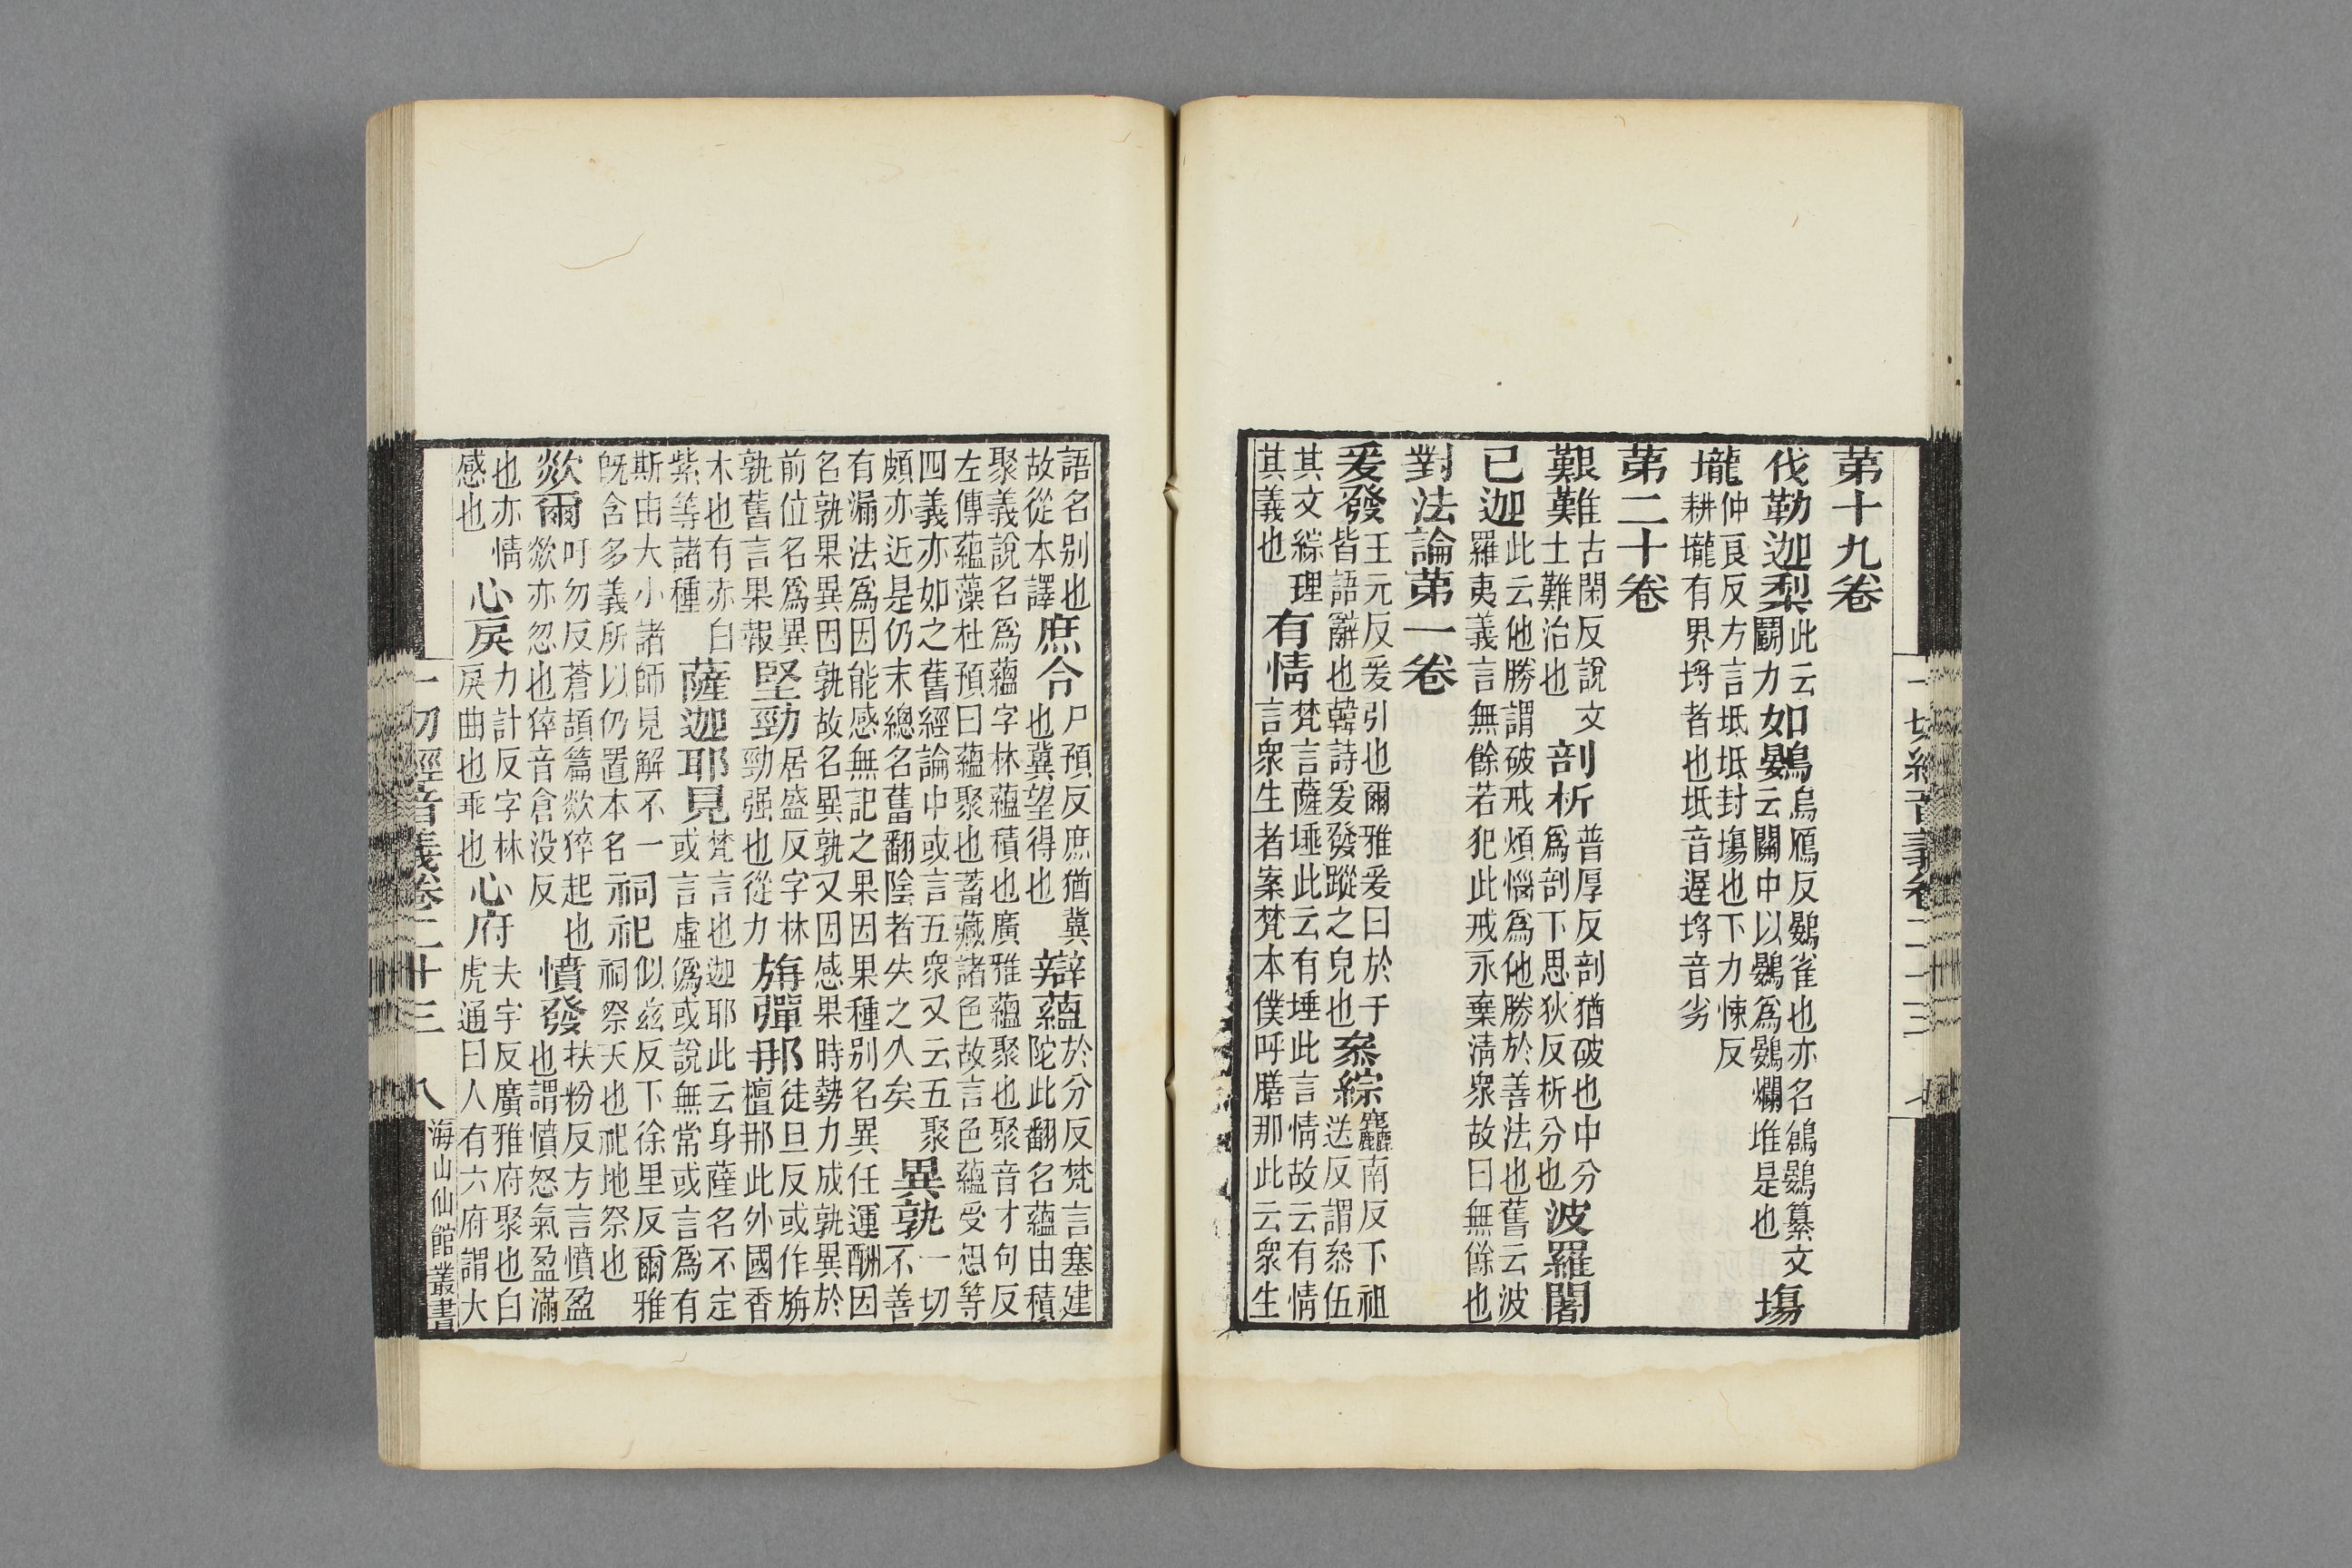 苐十九卷
伐勒迦梨此云鬭力如鷃烏鴈反鷃雀也亦名鶕鷃纂文云關中以鷃為鷃爛堆是也塲
壠仲良反方言坻坻封塲也下力悚反耕壠有界埒者也坻音遲埒音劣
苐二十卷
艱難古閑反說文土難治也剖析普厚反剖猶破也中分為剖下思狄反析分也波羅闍
已迦此云他勝謂破戒煩惱為他勝於善法也舊云波羅夷義言無餘若犯此戒永棄淸衆故曰無餘也
對法論苐一卷
爰發王元反爰引也爾雅爰曰於于皆語辭也韓詩爰發蹤之皃也叅綜南反下祖送反謂叅伍
其文綜理其義也有情梵言薩埵此云有埵此言情故云有情言衆生者案梵本僕呼膳那此云衆生
語名别也故從本譯庶令尸預反庶猶冀也冀望得也辯蘊於分反梵言塞建陀此翻名蘊由積
聚義說名為蘊字林蘊積也廣雅蘊聚也聚音才句反左傳蘊藻杜預曰蘊聚也蓄藏諸色故言色蘊受想等
四義亦如之舊經論中或言五衆又云五聚頗亦近是仍未總名舊翻陰者失之久矣異孰一切不善
有漏法為因能感無記之果因果種别名異任運酬因名孰果異因孰故名異孰又因感果時勢力成孰異於
前位名為異孰舊言果報堅勁居盛反字林勁强也從力旃彈那徒旦反或作旃檀那此外國香
木也有赤白紫等諸種薩迦耶見梵言也迦耶此云身薩名不定或言虛偽或說無常或言為有
斯由大小諸師見解不一旣含多義所以仍置本名祠祀似玆反下徐里反爾雅祠祭天也祀地祭也
欻爾吁勿反蒼頡篇欻猝起也欻亦忽也猝音倉没反憤發扶粉反方言憤盈也謂憤怒氣盈滿
也亦情感也心戾力計反字林戾曲也乖也心府夫宇反廣雅府聚也白虎通曰人有六府謂大
一切經音義卷二十三 八 海山仙館叢書